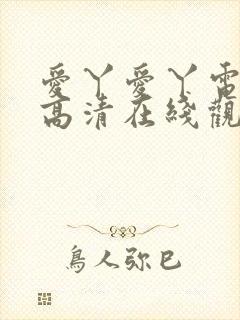 愛丫愛丫電
高清在綫觀
鳥人弥巳